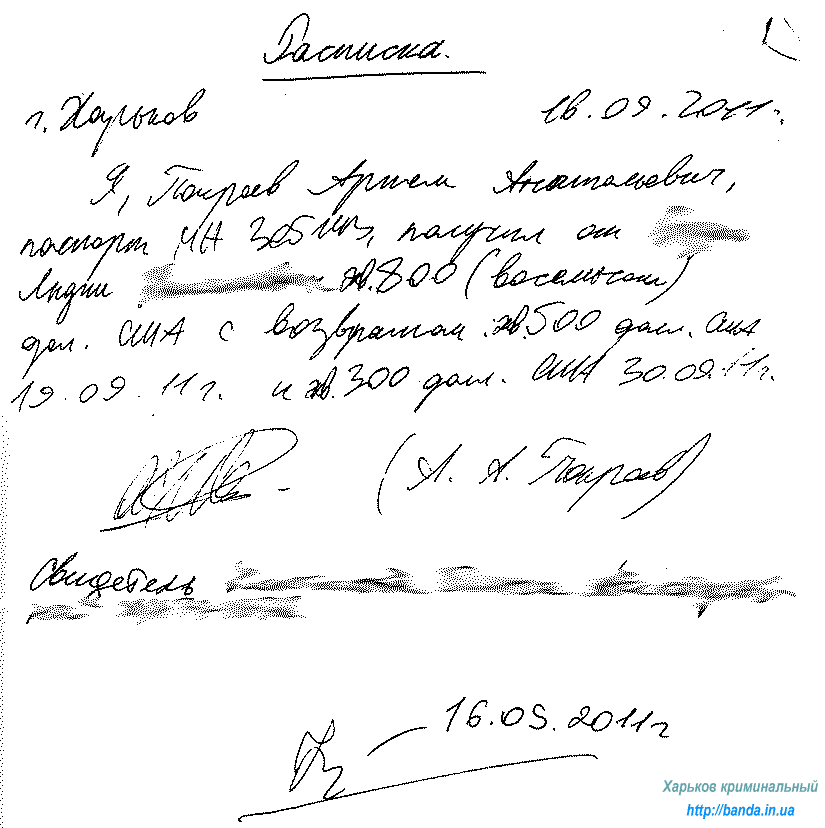 Расписка.
г. Харьков 16.09.2011г.
Я, Артем Анатольевич,
паспорт МН получил от
Лидии 800 (восемьсот)
дол. США с возвратом 500 дол. США
19.09.11г. и 300 дол. США 30.09.11г.
(А. А.
Свидетель
16.09.2011г
Харьков криминальный
http://banda.in.ua